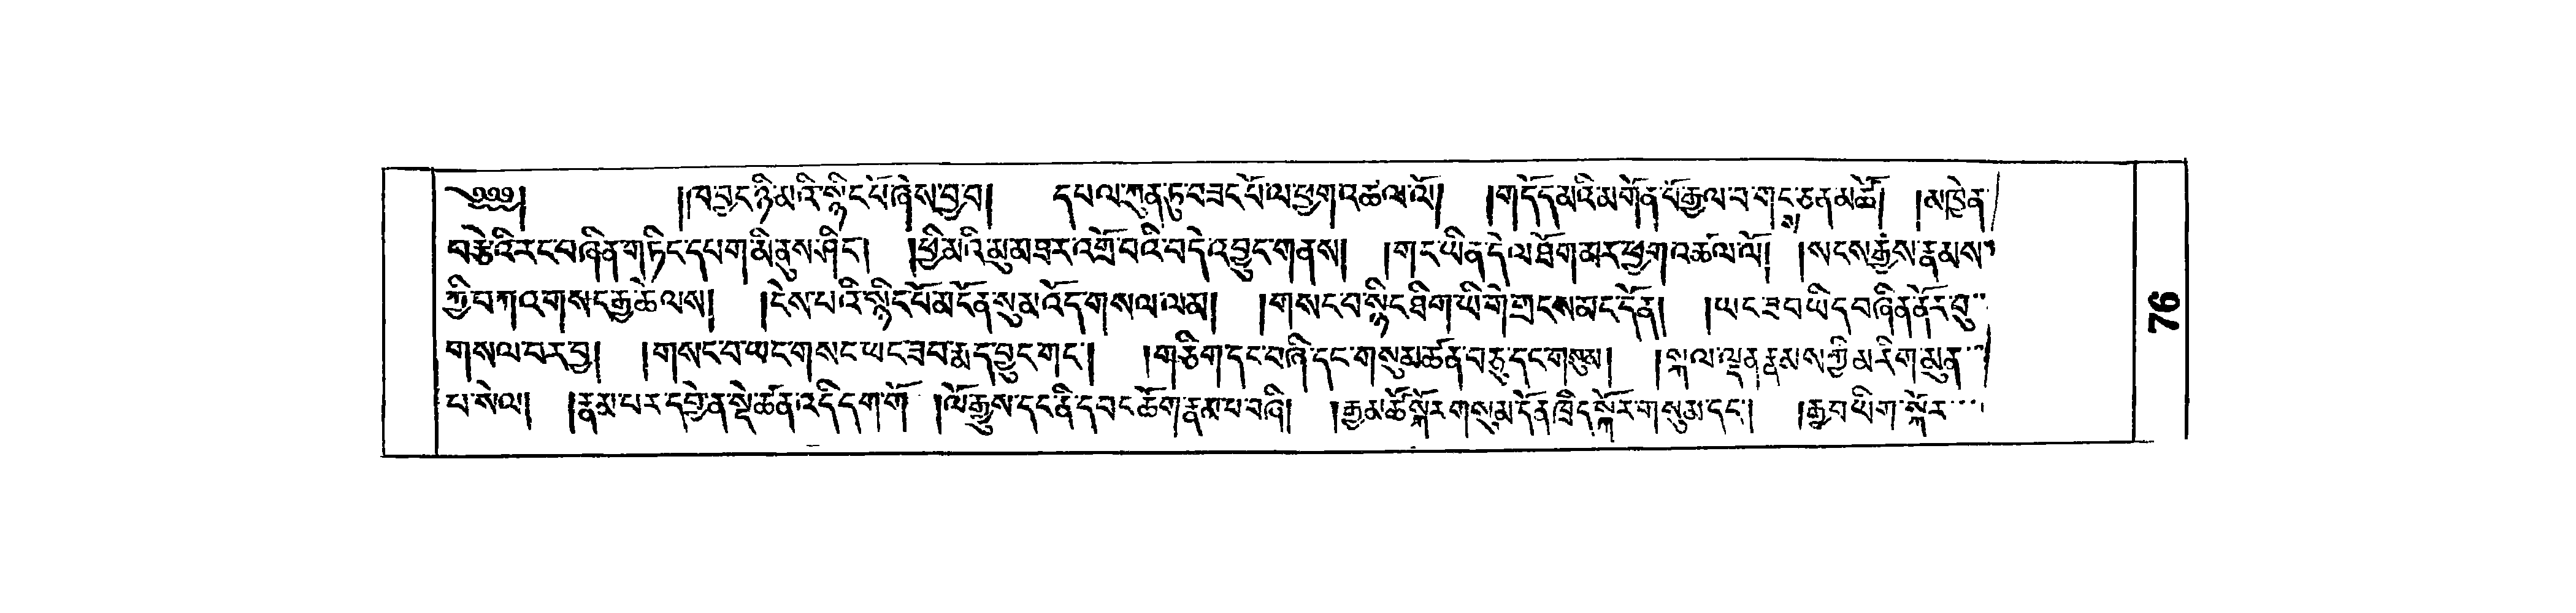 ༄༅༅། །ཁ་བྱང་ཉི་མའི་སྙིང་པོ་ཞེས་བྱ་བ། དཔལ་ཀུན་ཏུ་བཟང་པོ་ལ་ཕྱག་འཚལ་ལོ། །གདོད་མའི་མགོན་པོ་རྒྱལ་བ་གང་ཅན་མཚོ། །མཁྱེན་
བརྩེའི་རང་བཞིན་གཏིང་དཔག་མི་ནུས་ཤིང་། །ཕྱི་མའི་མུ་མཐར་འགྲོ་བའི་བདེ་འབྱུང་གནས། །གང་ཡིན་དེ་ལ་ཐོག་མར་ཕྱག་འཚལ་ལོ། །སངས་རྒྱས་རྣམས་
ཀྱི་བཀའ་གསང་རྒྱ་ཆེ་ལས། །ངེས་པའི་སྙིང་པོ་མངོན་སུམ་འོད་གསལ་ལམ། །གསང་བ་སྙིང་ཐིག་ཡི་གེ་གྲངས་མང་དོན། །ཡང་ཟབ་ཡིད་བཞིན་ནོར་བུ་
གསལ་བར་བྱ། །གསང་བ་ཡང་གསང་ཡང་ཟབ་རྨད་བྱུང་གང་། །གཅིག་དང་བཞི་དང་གསུམ་ཚན་བརྒྱ་དང་གསུམ། །སྐལ་ལྡན་རྣམས་ཀྱི་མ་རིག་མུན་
པ་སེལ། །རྣམ་པར་དབྱེ་ན་སྡེ་ཚན་འདི་དག་གོ །ལོ་རྒྱུས་དང་ནི་དབང་ཆོག་རྣམ་པ་བཞི། །རྒྱ་མཚོ་སྐོར་གསུམ་དོན་ཁྲིད་སྐོར་གསུམ་དང་། །རྒྱབ་ཡིག་སྐོར་
76